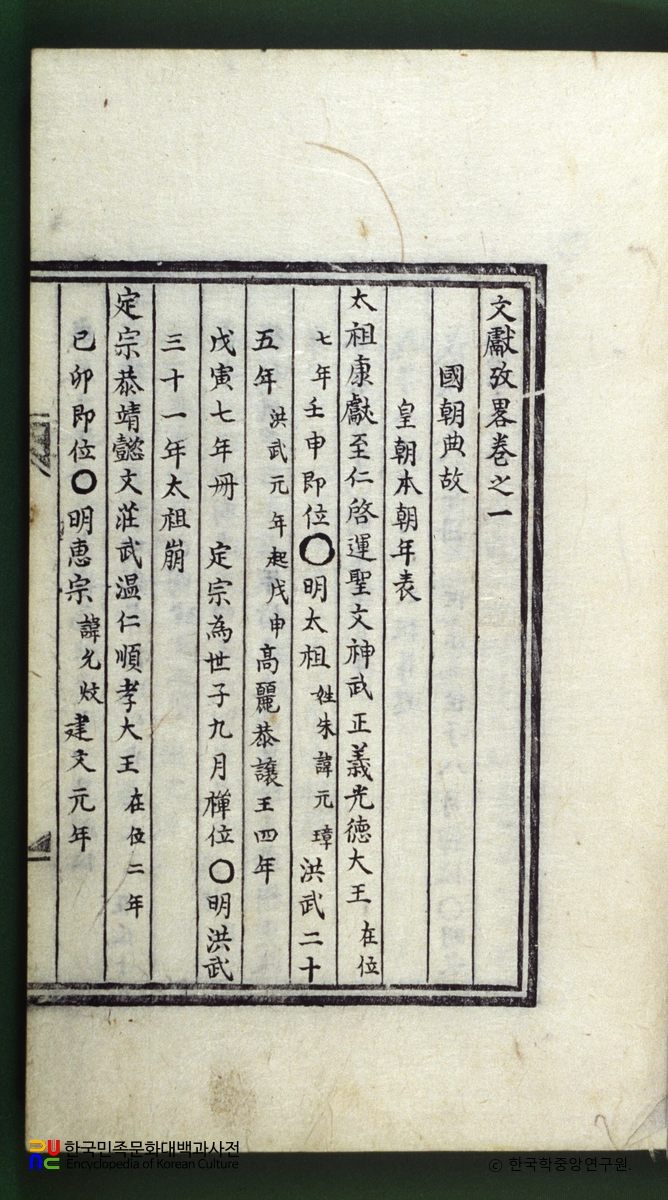 文獻攷畧卷之一
國朝典故
皇朝本朝年表
太祖康獻至仁啓運聖文神武正義光德大王在位
七年壬申即位〇明太祖姓朱諱元璋洪武二十
五年洪武元年起戊申高麗恭讓王四年
戊寅七年冊 定宗為世子九月禪位〇明洪武
三十一年太祖崩
定宗恭靖懿文莊武溫仁順孝大王在位二年
己卯即位〇明惠宗諱允炆建文元年
한국민족문화대백과사전
Encyclopedia of Korean Culture
© 한국학중앙연구원.